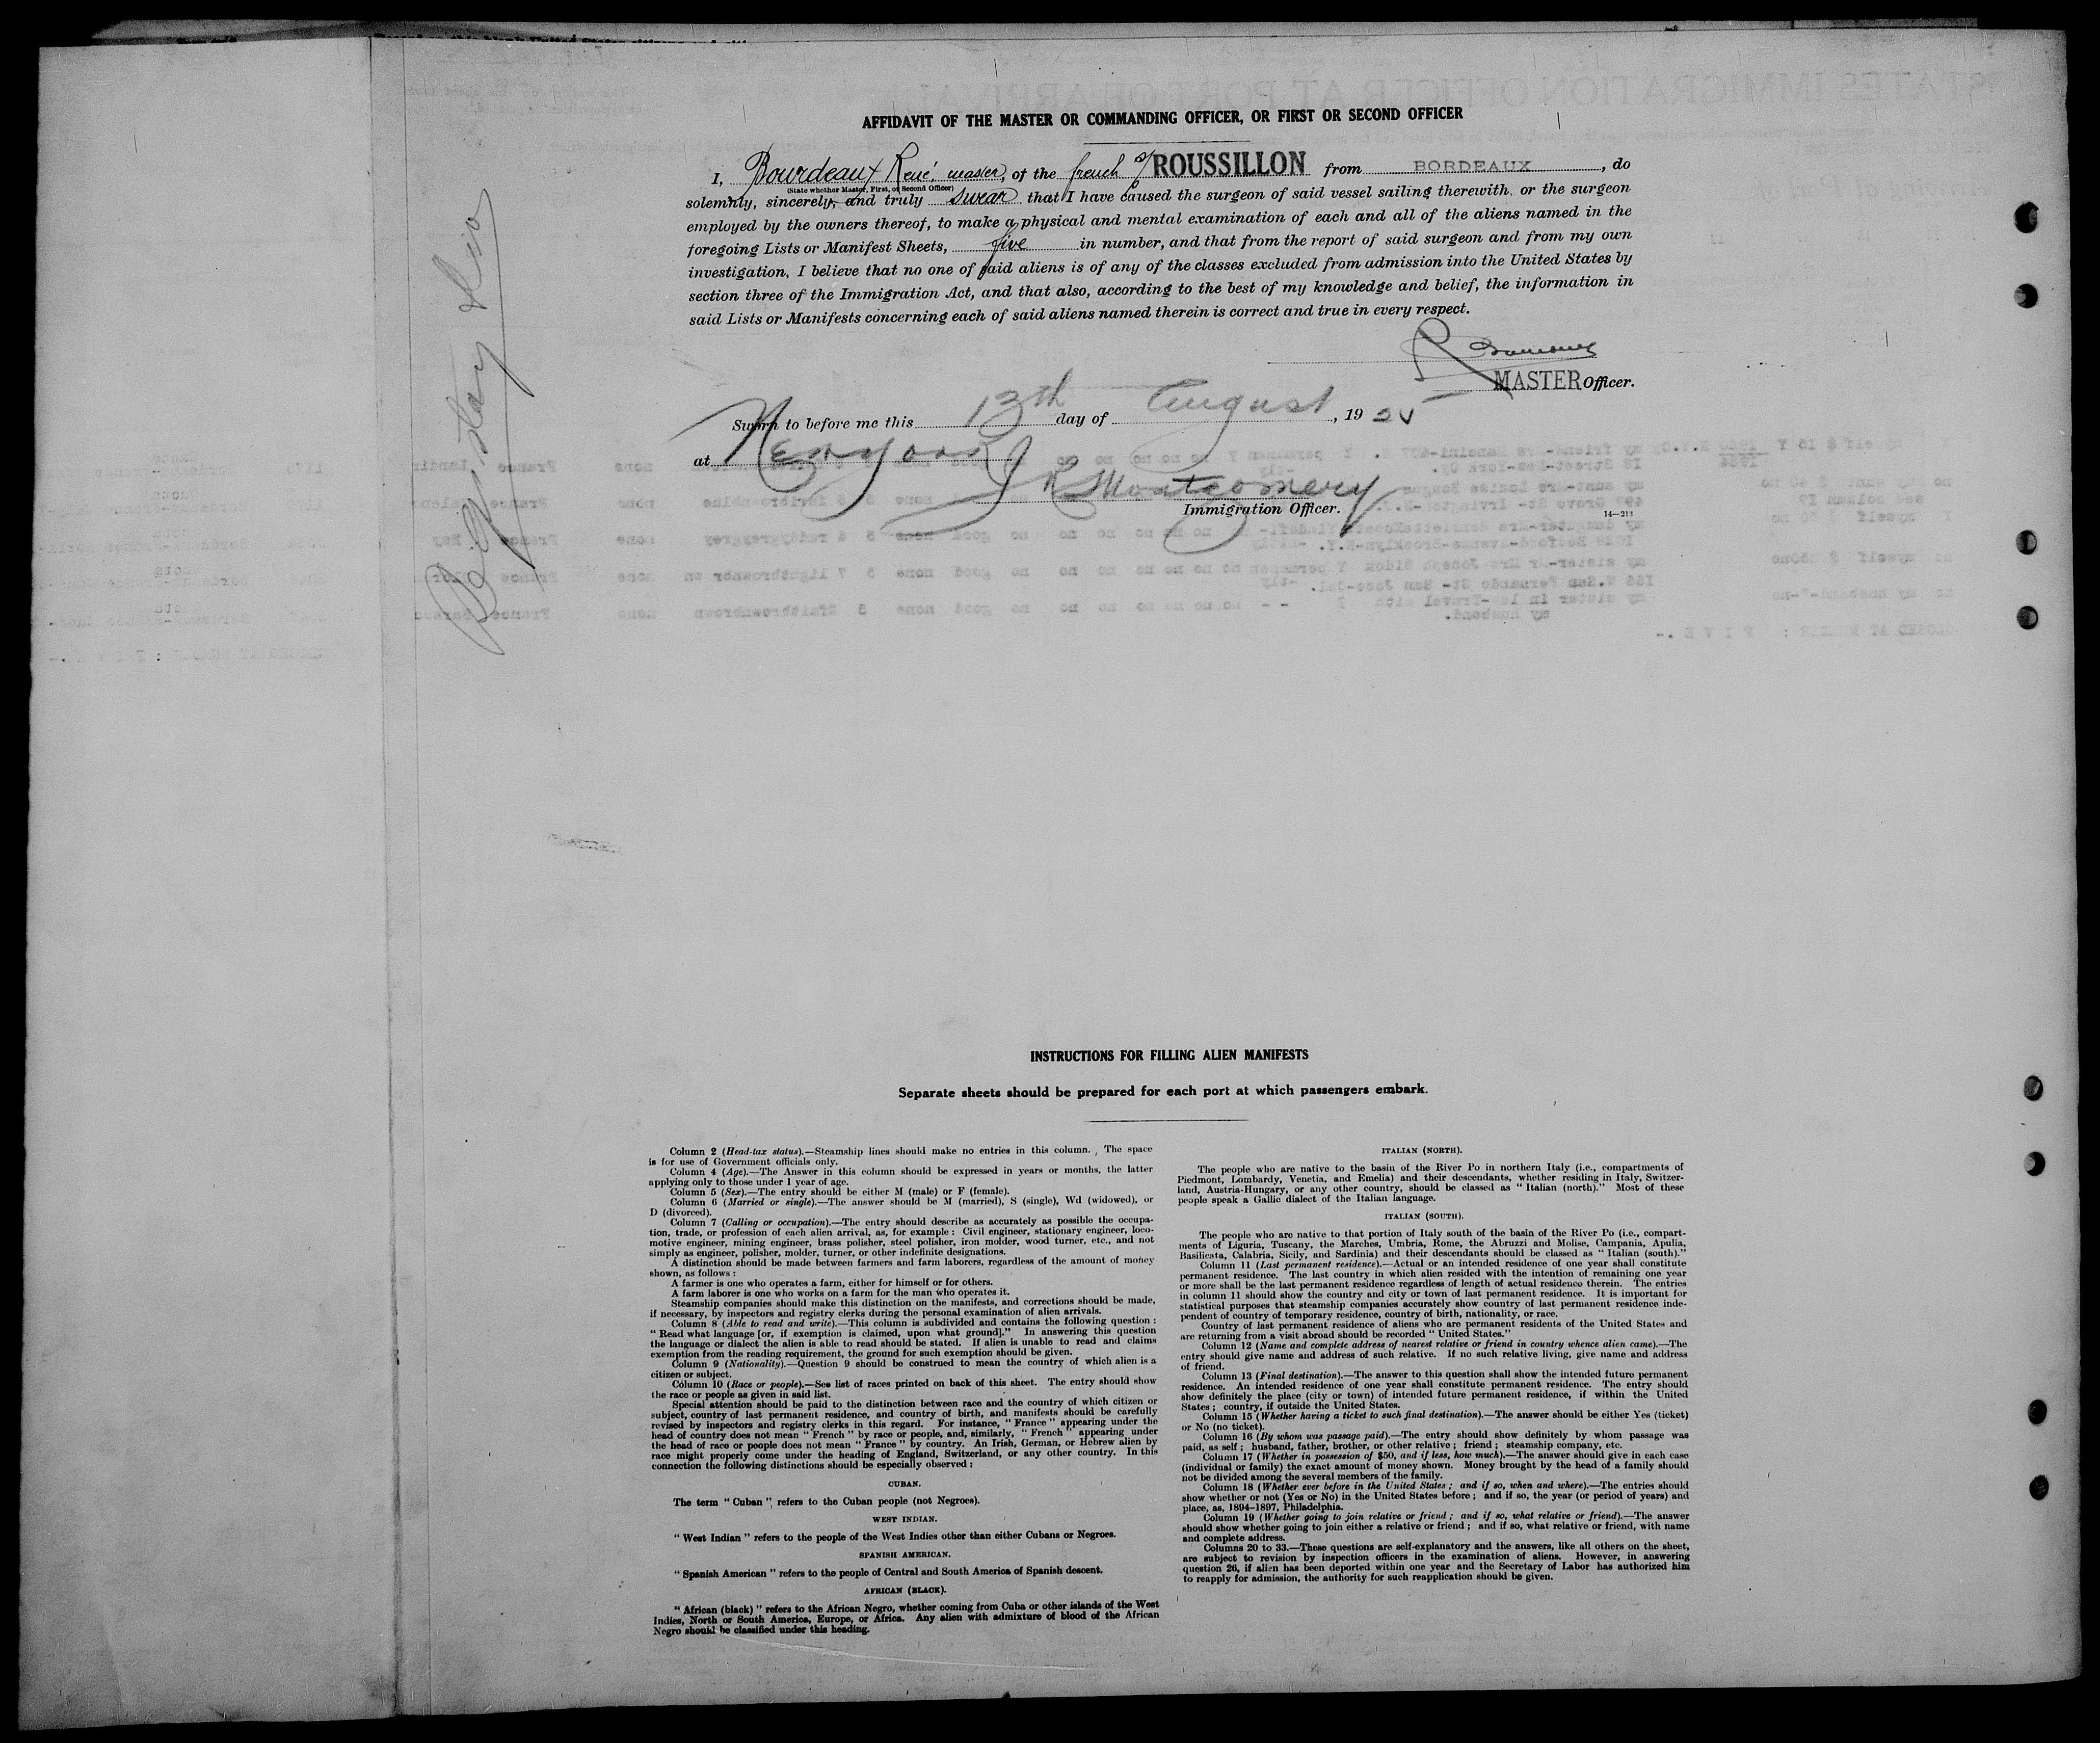 AFFIDAVIT OF THE MASTER OR COMMANDING OFFICER, OR FIRST OR SECOND OFFICER
I, Bourdeaux René, master, of the french s/ ROUSSILLON from BORDEAUX, do
(State whether Master, First, or Second Officer)
solemnly, sincerely, and truly swear that I have caused the surgeon of said vessel sailing therewith, or the surgeon
employed by the owners thereof, to make a physical and mental examination of each and all of the aliens named in the
foregoing Lists or Manifest Sheets, five in number, and that from the report of said surgeon and from my own
investigation, I believe that no one of said aliens is of any of the classes excluded from admission into the United States by
section three of the Immigration Act, and that also, according to the best of my knowledge and belief, the information in
said Lists or Manifests concerning each of said aliens named therein is correct and true in every respect.
MASTER Officer.
Sworn to before me this 13th day of August, 19
at New York
Montgomery
Immigration Officer.
14—213
INSTRUCTIONS FOR FILLING ALIEN MANIFESTS
Separate sheets should be prepared for each port at which passengers embark.
Column 2 (Head-tax status).—Steamship lines should make no entries in this column. The space
is for use of Government officials only.
Column 4 (Age).—The Answer in this column should be expressed in years or months, the latter
applying only to those under 1 year of age.
Column 5 (Sex).—The entry should be either M (male) or F (female).
Column 6 (Married or single).—The answer should be M (married), S (single), Wd (widowed), or
D (divorced).
Column 7 (Calling or occupation).—The entry should describe as accurately as possible the occupa-
tion, trade, or profession of each alien arrival, as, for example: Civil engineer, stationary engineer, loco-
motive engineer, mining engineer, brass polisher, steel polisher, iron molder, wood turner, etc., and not
simply as engineer, polisher, molder, turner, or other indefinite designations.
A distinction should be made between farmers and farm laborers, regardless of the amount of money
shown, as follows:
A farmer is one who operates a farm, either for himself or for others.
A farm laborer is one who works on a farm for the man who operates it.
Steamship companies should make this distinction on the manifests, and corrections should be made,
if necessary, by inspectors and registry clerks during the personal examination of alien arrivals.
Column 8 (Able to read and write).—This column is subdivided and contains the following question:
"Read what language [or, if exemption is claimed, upon what ground]." In answering this question
the language or dialect the alien is able to read should be stated. If alien is unable to read and claims
exemption from the reading requirement, the ground for such exemption should be given.
Column 9 (Nationality).—Question 9 should be construed to mean the country of which alien is a
citizen or subject.
Column 10 (Race or people).—See list of races printed on back of this sheet. The entry should show
the race or people as given in said list.
Special attention should be paid to the distinction between race and the country of which citizen or
subject, country of last permanent residence, and country of birth, and manifests should be carefully
revised by inspectors and registry clerks in this regard. For instance, "France" appearing under the
head of country does not mean "French" by race or people, and, similarly, "French" appearing under
the head of race or people does not mean "France" by country. An Irish, German, or Hebrew alien by
race might properly come under the heading of England, Switzerland, or any other country. In this
connection the following distinctions should be especially observed:
CUBAN.
The term "Cuban" refers to the Cuban people (not Negroes).
WEST INDIAN.
"West Indian" refers to the people of the West Indies other than either Cubans or Negroes.
SPANISH AMERICAN.
"Spanish American" refers to the people of Central and South America of Spanish descent.
AFRICAN (BLACK).
"African (black)" refers to the African Negro, whether coming from Cuba or other islands of the West
Indies, North or South America, Europe, or Africa. Any alien with admixture of blood of the African
Negro should be classified under this heading.
ITALIAN (NORTH).
The people who are native to the basin of the River Po in northern Italy (i.e., compartments of
Piedmont, Lombardy, Venetia, and Emelia) and their descendants, whether residing in Italy, Switzer-
land, Austria-Hungary, or any other country, should be classed as "Italian (north)." Most of these
people speak a Gallic dialect of the Italian language.
ITALIAN (SOUTH).
The people who are native to that portion of Italy south of the basin of the River Po (i.e., compart-
ments of Liguria, Tuscany, the Marches, Umbria, Rome, the Abruzzi and Molise, Campania, Apulia,
Basilicata, Calabria, Sicily, and Sardinia) and their descendants should be classed as "Italian (south)."
Column 11 (Last permanent residence).—Actual or an intended residence of one year shall constitute
permanent residence. The last country in which alien resided with the intention of remaining one year
or more shall be the last permanent residence regardless of length of actual residence therein. The entries
in column 11 should show the country and city or town of last permanent residence. It is important for
statistical purposes that steamship companies accurately show country of last permanent residence inde-
pendent of country of temporary residence, country of birth, nationality, or race.
Country of last permanent residence of aliens who are permanent residents of the United States and
are returning from a visit abroad should be recorded "United States."
Column 12 (Name and complete address of nearest relative or friend in country whence alien came).—The
entry should give name and address of such relative. If no such relative living, give name and address
of friend.
Column 13 (Final destination).—The answer to this question shall show the intended future permanent
residence. An intended residence of one year shall constitute permanent residence. The entry should
show definitely the place (city or town) of intended future permanent residence, if within the United
States; country, if outside the United States.
Column 15 (Whether having a ticket to such final destination).—The answer should be either Yes (ticket)
or No (no ticket).
Column 16 (By whom was passage paid).—The entry should show definitely by whom passage was
paid, as self; husband, father, brother, or other relative; friend; steamship company, etc.
Column 17 (Whether in possession of $50, and if less, how much).—The answer should give in each case
(individual or family) the exact amount of money shown. Money brought by the head of a family should
not be divided among the several members of the family.
Column 18 (Whether ever before in the United States; and if so, when and where).—The entries should
show whether or not (Yes or No) in the United States before; and if so, the year (or period of years) and
place, as, 1894–1897, Philadelphia.
Column 19 (Whether going to join relative or friend; and if so, what relative or friend).—The answer
should show whether going to join either a relative or friend; and if so, what relative or friend, with name
and complete address.
Columns 20 to 33.—These questions are self-explanatory and the answers, like all others on the sheet,
are subject to revision by inspection officers in the examination of aliens. However, in answering
question 26, if alien has been deported within one year and the Secretary of Labor has authorized him
to reapply for admission, the authority for such reapplication should be given.